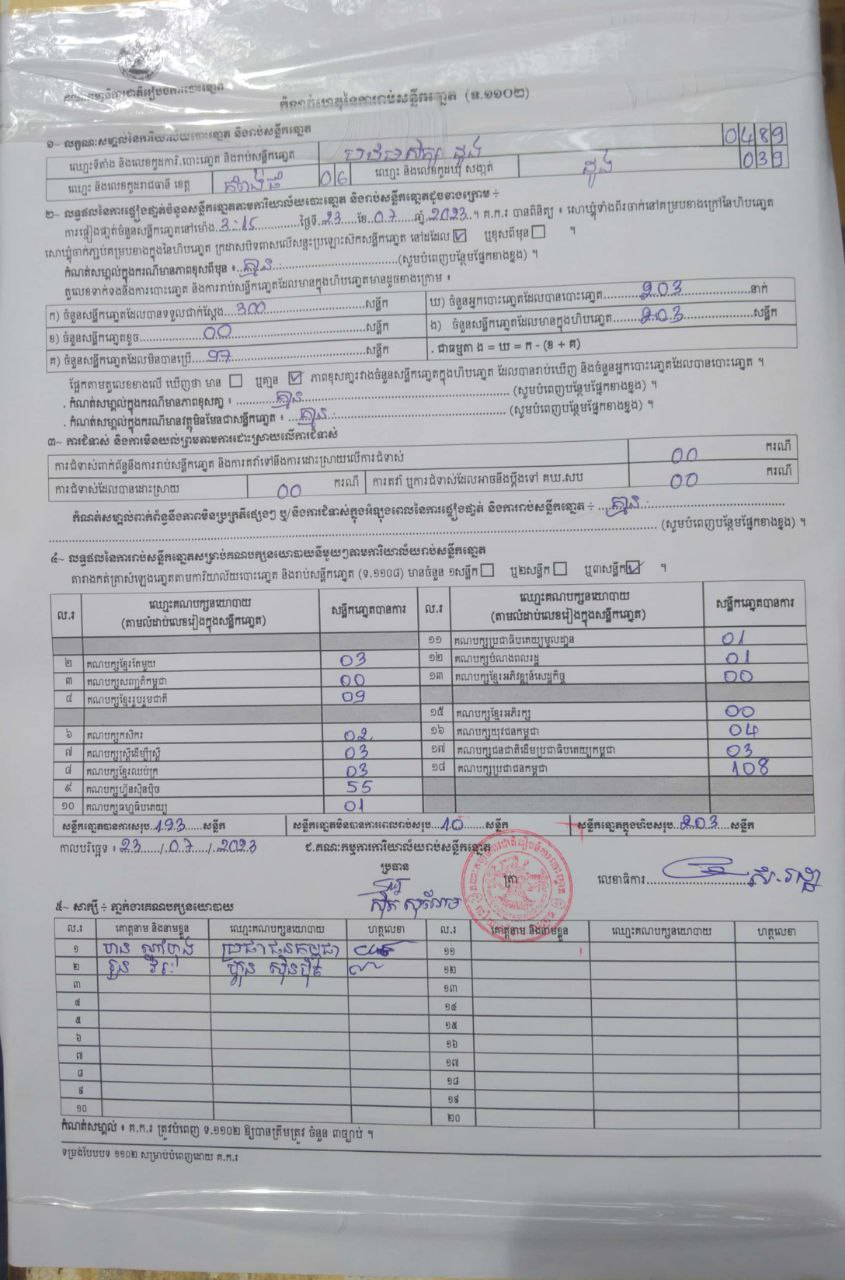 គណៈកម្មាធិការជាតិរៀបចំការបោះឆ្នោត
កំណត់ហេតុនៃការរាប់សន្លឹកឆ្នោត (ទ.១១០២)
១~ លក្ខណៈសម្គាល់នៃការិយាល័យបោះឆ្នោត និងរាប់សន្លឹកឆ្នោត
ឈ្មោះទីតាំង និងលេខកូដការិ.បោះឆ្នោត និងរាប់សន្លឹកឆ្នោត ដូង 0489
ឈ្មោះ និងលេខកូដរាជធានី ខេត្ត កំពង់ធំ 06 ឈ្មោះ និងលេខកូដឃុំ សង្កាត់ ដូង 039
២~ លទ្ធផលនៃការផ្ទៀងផ្ទាត់ចំនួនសន្លឹកឆ្នោតតាមការិយាល័យបោះឆ្នោត និងរាប់សន្លឹកឆ្នោតដូចខាងក្រោម ÷
ការផ្ទៀងផ្ទាត់ចំនួនសន្លឹកឆ្នោតនៅម៉ោង 3:15 ថ្ងៃទី 23 ខែ 07 ឆ្នាំ 2023 ។ គ.ក.រ បានពិនិត្យ ៖ សោឃ្មុំទាំងពីរចាក់នៅគម្របខាងក្រៅនៃហិបឆ្នោត
សោឃ្មុំចាក់ភ្ជាប់គម្របខាងក្នុងនៃហិបឆ្នោត ក្រដាសបិទពាសលើសន្ទះប្រឡោះស៊កសន្លឹកឆ្នោត នៅដដែល ☑ ឬខុសពីមុន ☐ ។
កំណត់សម្គាល់ក្នុងករណីមានភាពខុសពីមុន ៖ គ្មាន (សូមបំពេញបន្ថែមផ្នែកខាងខ្នង) ។
តួលេខទាក់ទងនឹងការបោះឆ្នោត និងការរាប់សន្លឹកឆ្នោតដែលមានក្នុងហិបឆ្នោតមានដូចខាងក្រោម ៖
ក) ចំនួនសន្លឹកឆ្នោតដែលបានទទួលជាក់ស្តែង 300 សន្លឹក ឃ) ចំនួនអ្នកបោះឆ្នោតដែលបានបោះឆ្នោត 203 នាក់
ខ) ចំនួនសន្លឹកឆ្នោតខូច 00 សន្លឹក ង) ចំនួនសន្លឹកឆ្នោតដែលមានក្នុងហិបឆ្នោត 203 សន្លឹក
គ) ចំនួនសន្លឹកឆ្នោតដែលមិនបានប្រើ 97 សន្លឹក . ជាធម្មតា ង = ឃ = ក - (ខ + គ)
ផ្អែកតាមតួលេខខាងលើ ឃើញថា មាន ☐ ឬគ្មាន ☑ ភាពខុសគ្នារវាងចំនួនសន្លឹកឆ្នោតក្នុងហិបឆ្នោត ដែលបានរាប់ឃើញ និងចំនួនអ្នកបោះឆ្នោតដែលបានបោះឆ្នោត ។
. កំណត់សម្គាល់ក្នុងករណីមានភាពខុសគ្នា ៖ គ្មាន (សូមបំពេញបន្ថែមផ្នែកខាងខ្នង) ។
. កំណត់សម្គាល់ក្នុងករណីមានវត្ថុមិនមែនជាសន្លឹកឆ្នោត ៖ គ្មាន (សូមបំពេញបន្ថែមផ្នែកខាងខ្នង) ។
៣~ ការជំទាស់ និងការមិនយល់ព្រមតាមការដោះស្រាយលើការជំទាស់
ការជំទាស់ពាក់ព័ន្ធនឹងការរាប់សន្លឹកឆ្នោត និងការតវ៉ាទៅនឹងការដោះស្រាយលើការជំទាស់ 00 ករណី
ការជំទាស់ដែលបានដោះស្រាយ 00 ករណី ការតវ៉ា ឬការជំទាស់ដែលអាចនឹងប្តឹងទៅ គឃ.សប 00 ករណី
កំណត់សម្គាល់ពាក់ព័ន្ធនឹងភាពមិនប្រក្រតីផ្សេងៗ ឬ/និងការជំទាស់ក្នុងអំឡុងពេលនៃការផ្ទៀងផ្ទាត់ និងការរាប់សន្លឹកឆ្នោត ÷ គ្មាន
(សូមបំពេញបន្ថែមផ្នែកខាងខ្នង) ។
៤~ លទ្ធផលនៃការរាប់សន្លឹកឆ្នោតសម្រាប់គណបក្សនយោបាយនីមួយៗតាមការិយាល័យរាប់សន្លឹកឆ្នោត
តារាងកត់ត្រាសំឡេងឆ្នោតតាមការិយាល័យបោះឆ្នោត និងរាប់សន្លឹកឆ្នោត (ទ.១១០៨) មានចំនួន ១សន្លឹក ☐ ឬ២សន្លឹក ☐ ឬ៣សន្លឹក ☑ ។
ល.រ ឈ្មោះគណបក្សនយោបាយ (តាមលំដាប់លេខរៀងក្នុងសន្លឹកឆ្នោត) សន្លឹកឆ្នោតបានការ ល.រ ឈ្មោះគណបក្សនយោបាយ (តាមលំដាប់លេខរៀងក្នុងសន្លឹកឆ្នោត) សន្លឹកឆ្នោតបានការ
១១ គណបក្សប្រជាធិបតេយ្យមូលដ្ឋាន 01
២ គណបក្សខ្មែរតែមួយ 03 ១២ គណបក្សបំណងពលរដ្ឋ 01
៣ គណបក្សសញ្ជាតិកម្ពុជា 00 ១៣ គណបក្សខ្មែរអភិវឌ្ឍន៍សេដ្ឋកិច្ច 00
៤ គណបក្សខ្មែររួបរួមជាតិ 09
១៥ គណបក្សខ្មែរអភិរក្ស 00
៦ គណបក្សកសិករ 02 ១៦ គណបក្សយុវជនកម្ពុជា 04
៧ គណបក្សស្ត្រីដើម្បីស្ត្រី 03 ១៧ គណបក្សជនជាតិដើមប្រជាធិបតេយ្យកម្ពុជា 03
៨ គណបក្សខ្មែរឈប់ក្រ 03 ១៨ គណបក្សប្រជាជនកម្ពុជា 108
៩ គណបក្សហ្វ៊ុនស៊ិនប៉ិច 55
១០ គណបក្សធម្មាធិបតេយ្យ 01
សន្លឹកឆ្នោតបានការសរុប 193 សន្លឹក សន្លឹកឆ្នោតមិនបានការពេលរាប់សរុប 10 សន្លឹក សន្លឹកឆ្នោតក្នុងហិបសរុប 203 សន្លឹក
កាលបរិច្ឆេទ ៖ 23 / 07 / 2023 ជ.គណៈកម្មការការិយាល័យរាប់សន្លឹកឆ្នោត
ប្រធាន ត្រា លេខាធិការ
៥~ សាក្សី ÷ ភ្នាក់ងារគណបក្សនយោបាយ
ល.រ គោត្តនាម និងនាមខ្លួន ឈ្មោះគណបក្សនយោបាយ ហត្ថលេខា ល.រ គោត្តនាម និងនាមខ្លួន ឈ្មោះគណបក្សនយោបាយ ហត្ថលេខា
១ ប្រជាជនកម្ពុជា ១១
២ ហ្វ៊ុនស៊ិនប៉ិច ១២
៣ ១៣
៤ ១៤
៥ ១៥
៦ ១៦
៧ ១៧
៨ ១៨
៩ ១៩
១០ ២០
កំណត់សម្គាល់ ៖ គ.ក.រ ត្រូវបំពេញ ទ.១១០២ ឱ្យបានត្រឹមត្រូវ ចំនួន ៣ច្បាប់ ។
ទម្រង់បែបបទ ១១០២ សម្រាប់បំពេញដោយ គ.ក.រ